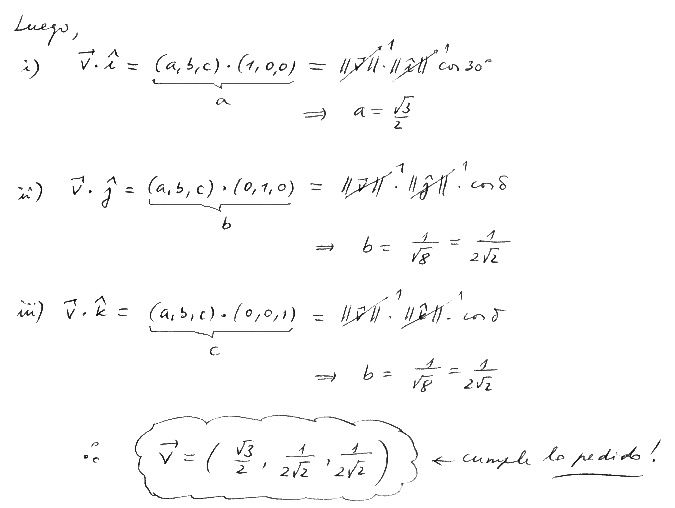 Luego,
i) $\vec{v} \cdot \hat{i} = \underbrace{(a,b,c) \cdot (1,0,0)}_{a} = \cancel{\|\vec{v}\|}^{1} \cdot \cancel{\|\hat{i}\|}^{1} \cos 30°$
$\Rightarrow a = \frac{\sqrt{3}}{2}$
ii) $\vec{v} \cdot \hat{j} = \underbrace{(a,b,c) \cdot (0,1,0)}_{b} = \cancel{\|\vec{v}\|}^{1} \cdot \cancel{\|\hat{j}\|}^{1} \cdot \cos \delta$
$\Rightarrow b = \frac{1}{\sqrt{8}} = \frac{1}{2\sqrt{2}}$
iii) $\vec{v} \cdot \hat{k} = \underbrace{(a,b,c) \cdot (0,0,1)}_{c} = \cancel{\|\vec{v}\|}^{1} \cdot \cancel{\|\hat{k}\|}^{1} \cdot \cos \delta$
$\Rightarrow b = \frac{1}{\sqrt{8}} = \frac{1}{2\sqrt{2}}$
$\therefore \vec{v} = \left( \frac{\sqrt{3}}{2}, \frac{1}{2\sqrt{2}}, \frac{1}{2\sqrt{2}} \right)$ ← cumple lo pedido!